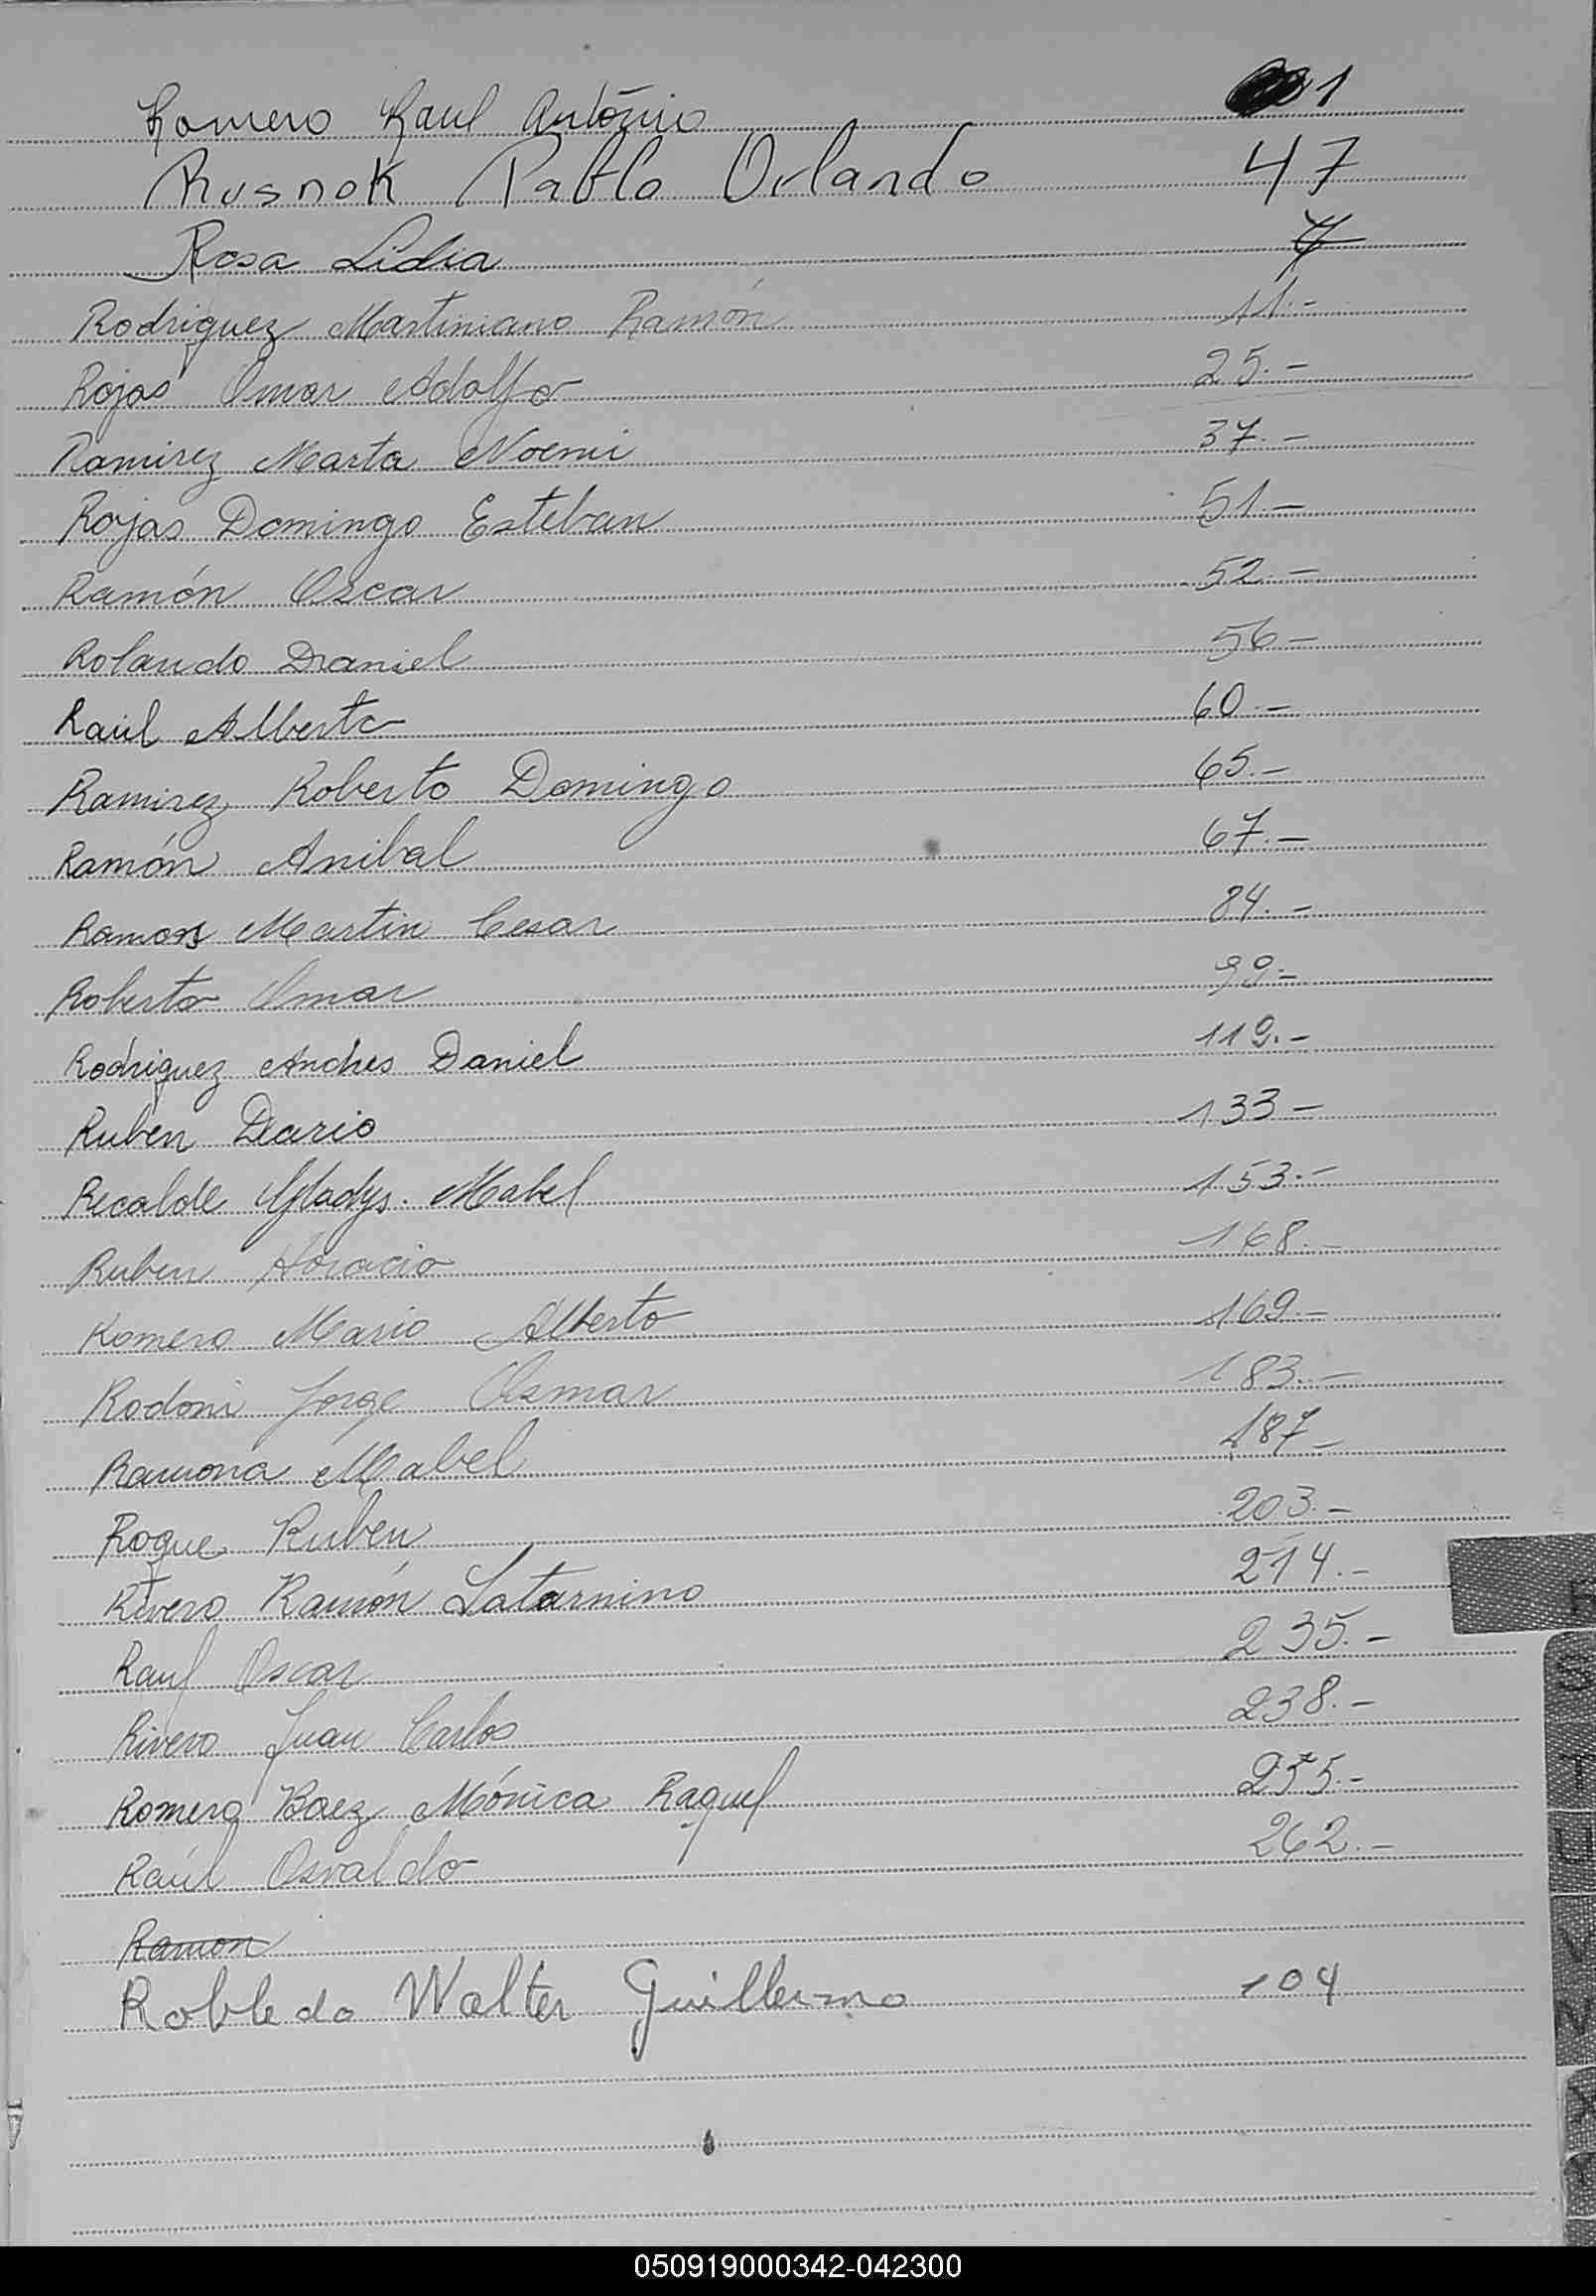 Romero Raul António 1
Rusnok Pablo Orlando 47
Rosa Lidia 7
Rodriguez Martiniano Ramón 11.-
Rojas Omar Adolfo 25.-
Ramirez Marta Noemi 37.-
Rojas Domingo Esteban 51.-
Ramón Oscar 52.-
Rolando Daniel 56-
Raúl Alberto 60.-
Ramirez Roberto Domingo 65.-
Ramón Anibal 67.-
Ramon Martin Cesar 84.-
Roberto Omar 99.-
Rodriguez Andres Daniel 119.-
Ruben Dario 133-
Recalde Gladys Mabel 153.-
Ruben Horacio 168.-
Romero Mario Alberto 169.-
Rodoni Jorge Osmar 183.-
Ramona Mabel 187-
Roque Ruben 203.-
Rivero Ramón Satarnino 214.-
Raul Oscar 235.-
Rivero Juan Carlos 238.-
Romero Baez Mónica Raquel 255.-
Raúl Osvaldo 262.-
Ramon
Robledo Walter Guillermo 104
050919000342-042300